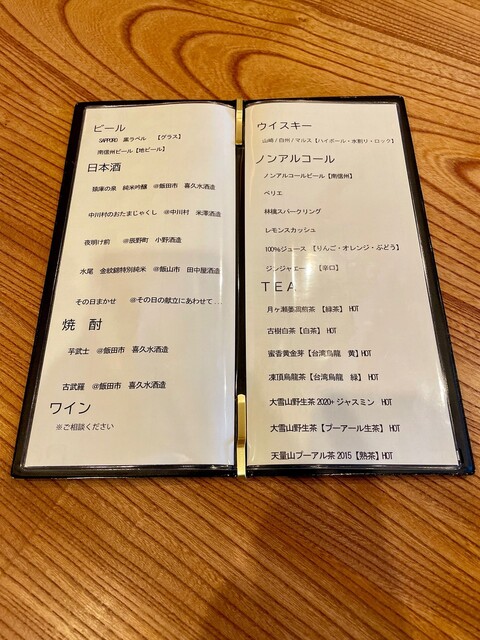 ビール
SAPPORO 黒ラベル 【グラス】
南信州ビール【地ビール】
日本酒
猿庫の泉 純米吟醸 @飯田市 喜久水酒造
中川村のおたまじゃくし @中川村 米澤酒造
夜明け前 @辰野町 小野酒造
水尾 金紋錦特別純米 @飯山市 田中屋酒造
その日まかせ @その日の献立にあわせて...
焼酎
芋武士 @飯田市 喜久水酒造
古武羅 @飯田市 喜久水酒造
ワイン
※ご相談ください
ウイスキー
山崎/白州/マルス【ハイボール・水割り・ロック】
ノンアルコール
ノンアルコールビール【南信州】
ペリエ
林檎スパークリング
レモンスカッシュ
100%ジュース 【りんご・オレンジ・ぶどう】
ジンジャエー 【辛口】
TEA
月ヶ瀬 煎茶 【緑茶】 HOT
古樹白茶【白茶】 HOT
蜜香黄金芽【台湾烏龍 黄】HOT
凍頂烏龍茶【台湾烏龍 緑】 HOT
大雪山野生茶2020+ジャスミン HOT
大雪山野生茶【プーアール生茶】HOT
天量山プーアル茶2015【熟茶】HOT